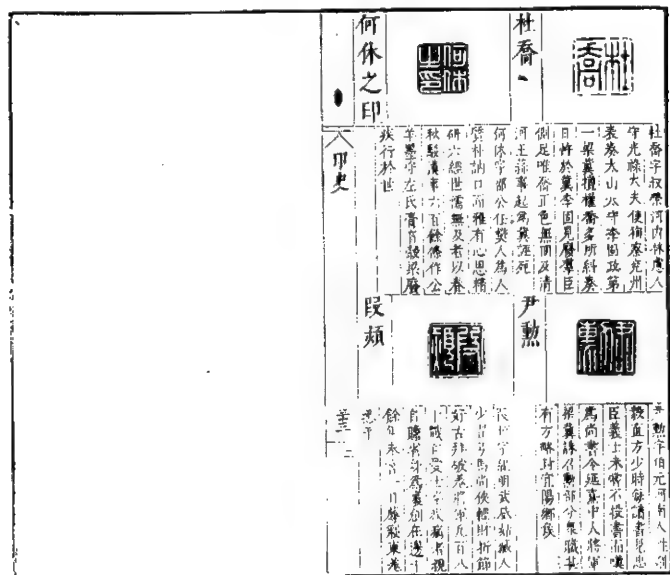 杜喬
杜喬
杜喬字叔榮河内林慮人
守光祿大夫使徇察兖州
表奏太山太守李固政第
一梁冀擅權喬多所糾奏
日忤於冀李固見廢羣臣
側足唯喬正色無回及清
河王蒜事起為冀誣死
何休之印
何休之印
何休字邵公任城樊人為人
質朴訥口而雅有心思精
研六經世儒無及者以春
秋駁漢事六百餘條作公
羊墨守左氏膏肓穀梁廢
疾行於世
印史
尹勳
尹勳
尹勳字伯元河南人
毅直方少時每讀書見忠
臣義士未嘗不投書而嘆
為尚書令延熹中人將軍
梁冀誅召勳部分衆職甚
有方略封宜陽鄉侯
段熲
段熲
段熲字紀明武威姑臧人
少習弓馬尚俠輕財折節
好古拜破羌將軍凡百八
十戰
餘年未嘗一日蓐寢東羌
悉平